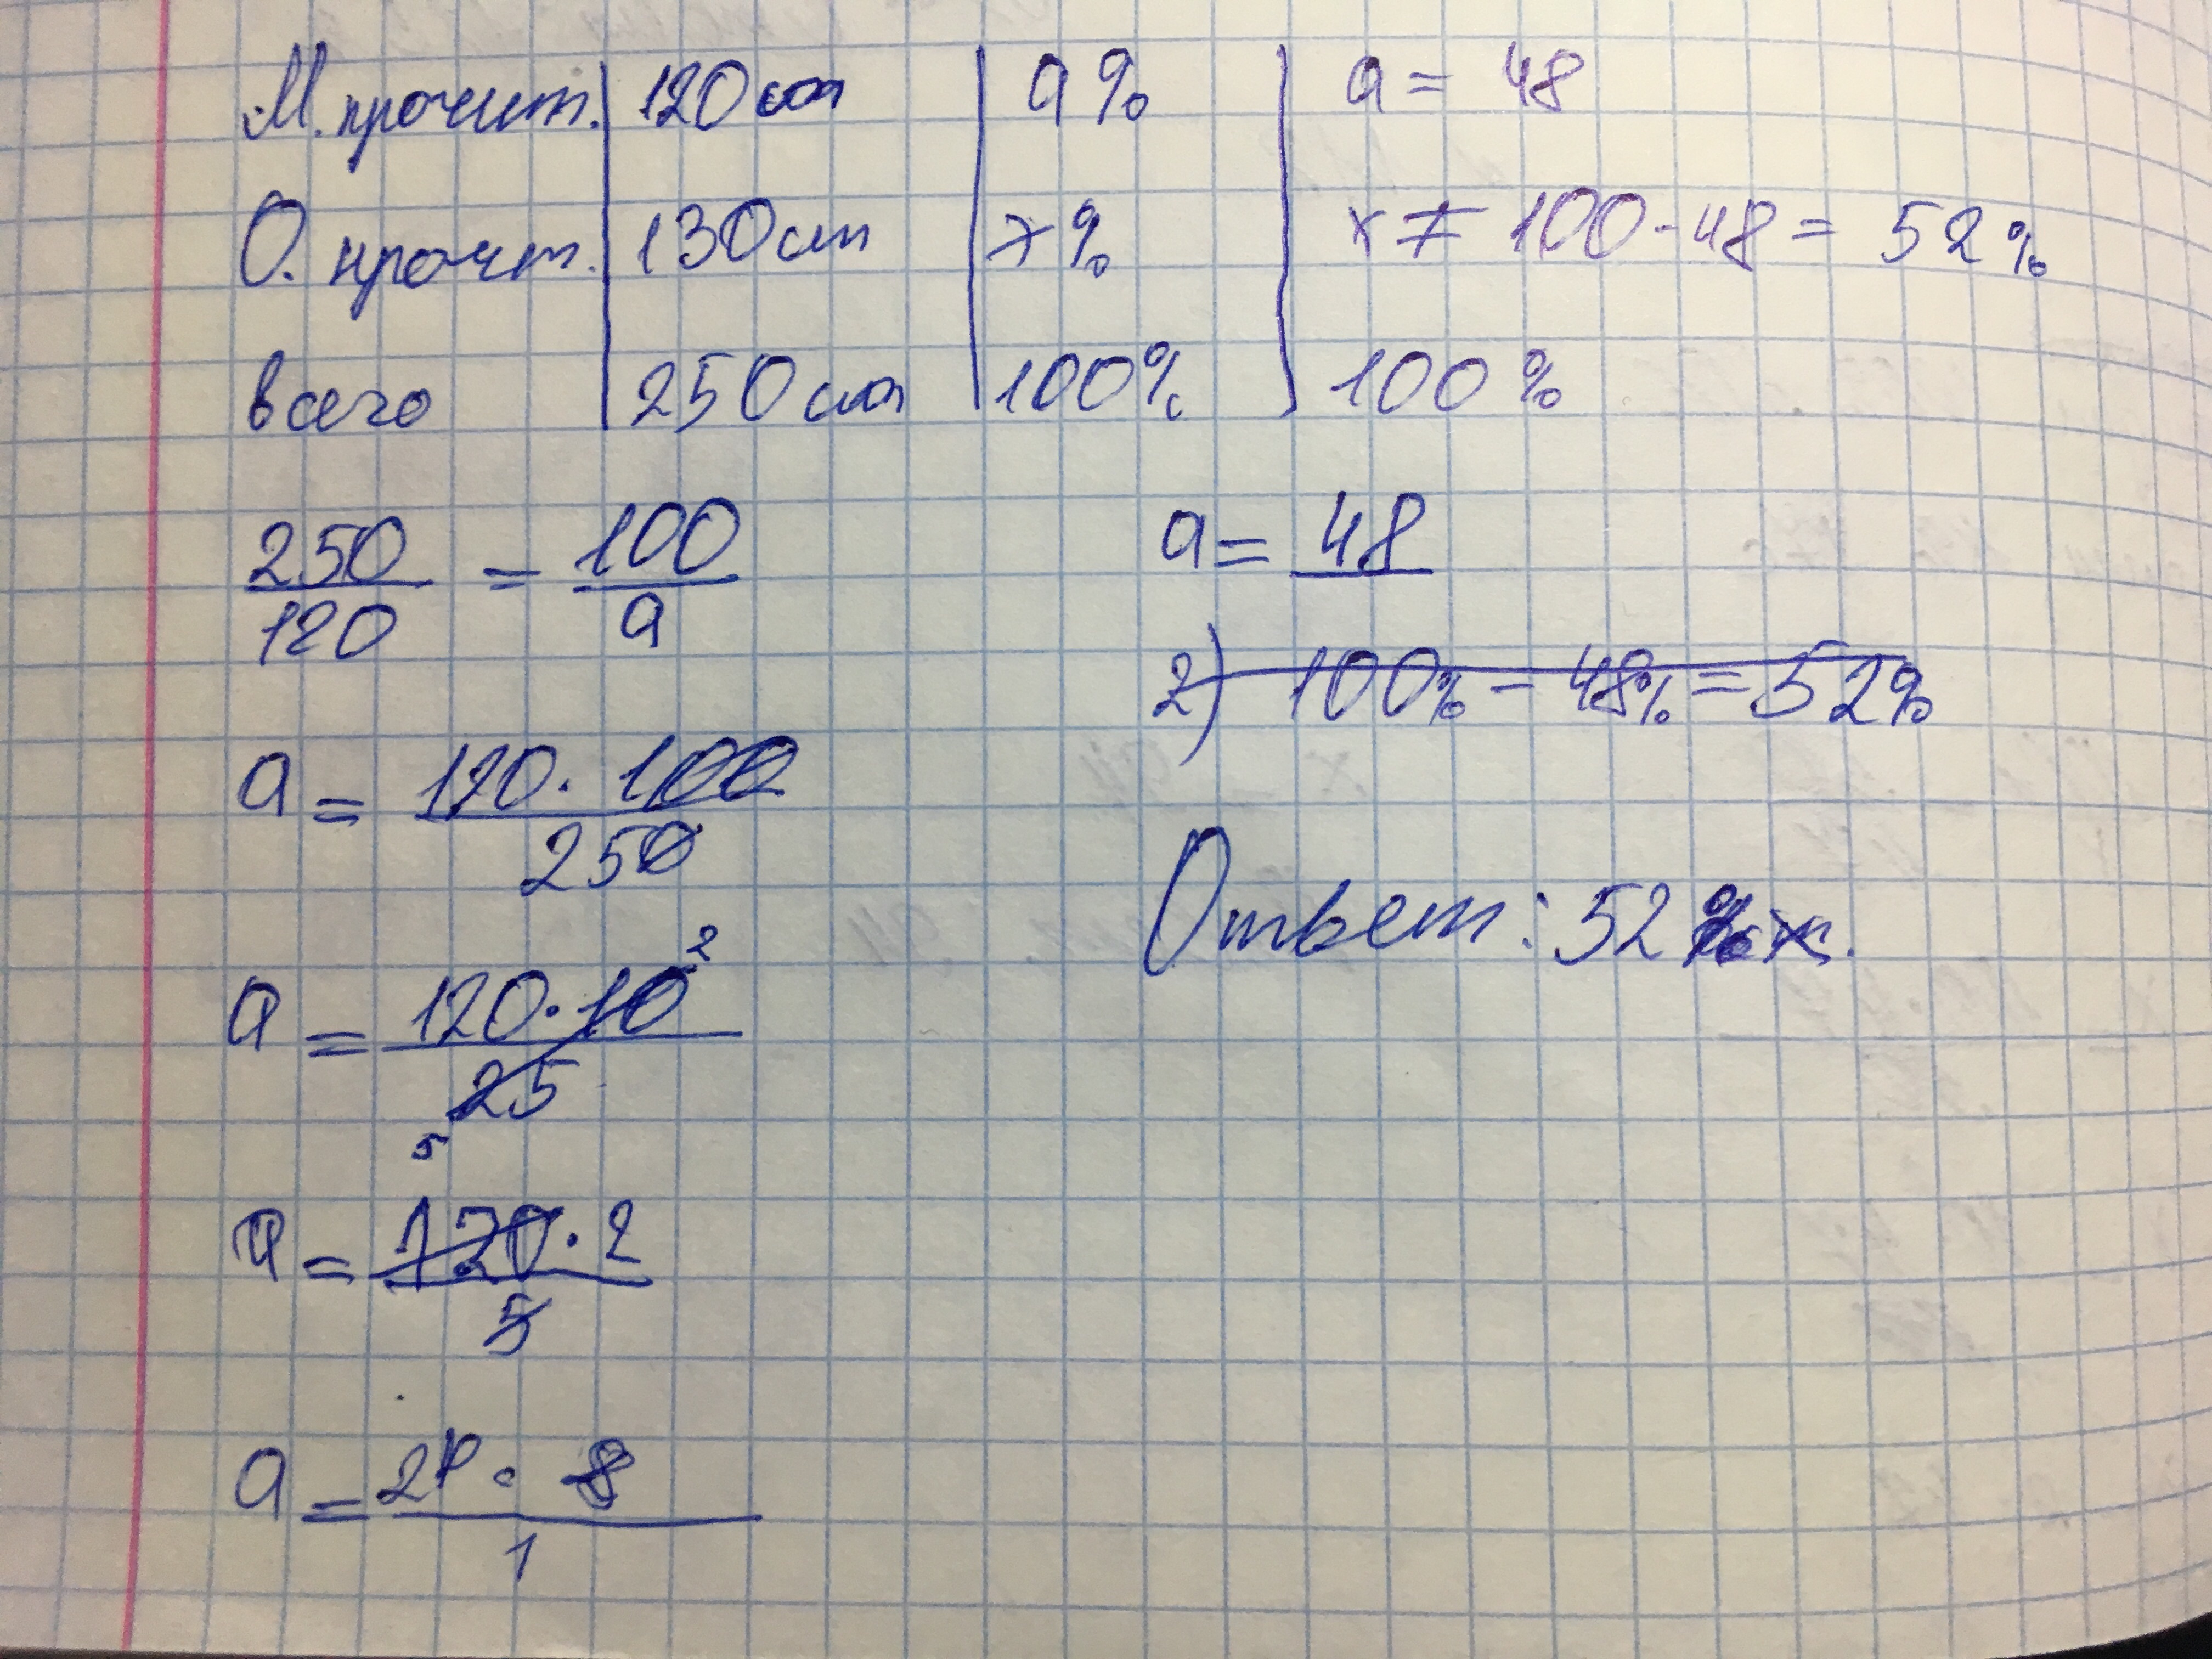 М. прочит. 120 a% a = 48
О. прочит. 130 x% x = 100 - 48 = 52%
всего 250 100% 100%
250/120 = 100/a
a = 120 · 100 / 250
a = 120 · 10 2 / 25 5
a = 120 · 2 / 5
a = 8 / 1
a = 48
2) 100% - 48% = 52%
Ответ: 52 %